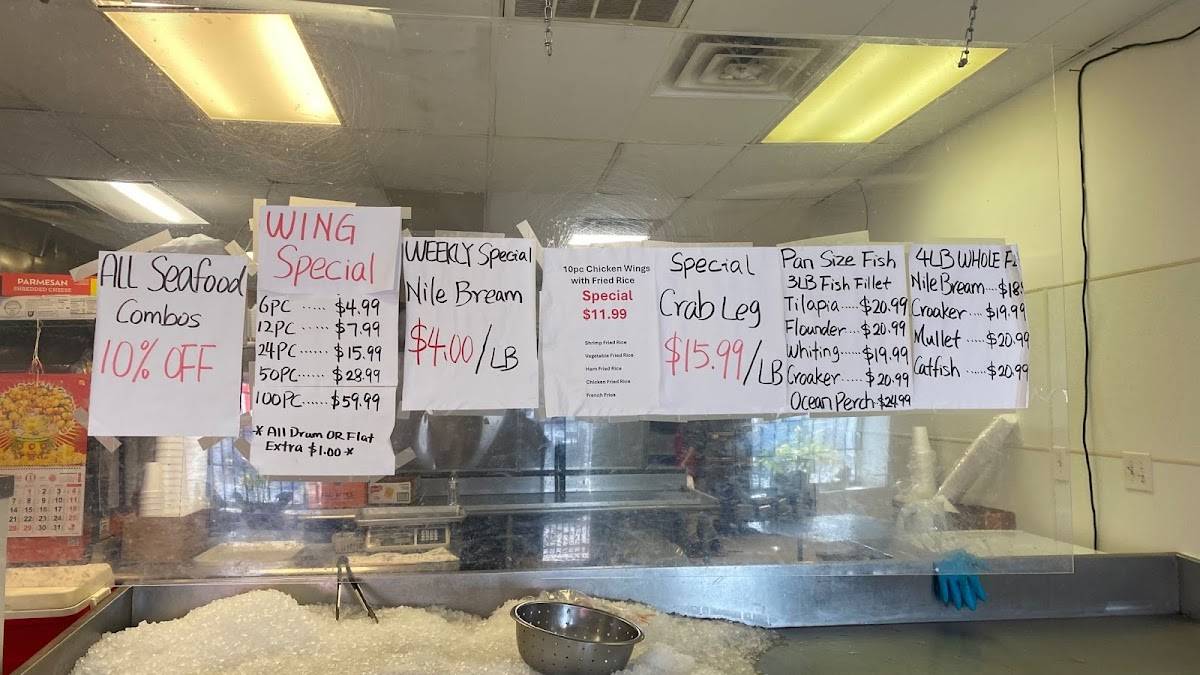 PARMESAN
SHREDDED CHEESE
ALL Seafood
Combos
10% OFF
WING
Special
6PC ..... $4.99
12PC ..... $7.99
24PC ...... $15.99
50PC ...... $28.99
100PC ...... $59.99
* All Drum OR Flat
Extra $1.00 *
WEEKLY Special
Nile Bream
$4.00/LB
10pc Chicken Wings
with Fried Rice
Special
$11.99
Shrimp Fried Rice
Vegetable Fried Rice
Ham Fried Rice
Chicken Fried Rice
French Fries
Special
Crab Leg
$15.99/LB
Pan Size Fish
3LB Fish Fillet
Tilapia .... $20.99
Flounder ... $20.99
Whiting .... $19.99
Croaker ..... $20.99
Ocean Perch . $24.99
4LB WHOLE
Nile Bream ... $18
Croaker .... $19.99
Mullet ..... $20.99
Catfish ..... $20.99